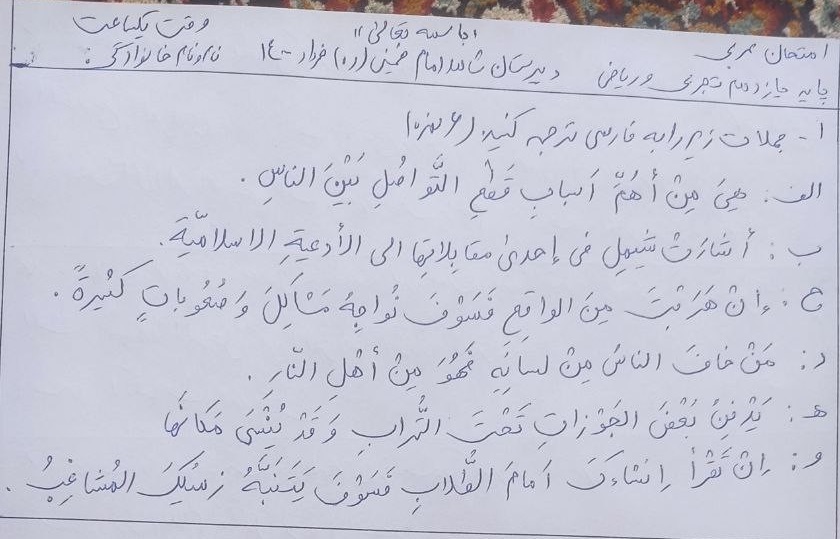 باسمه تعالی
وقت یکساعت
امتحان عربی
پایه یازدهم تجربی و ریاضی دبیرستان شاهد امام خمینی (ره) خرداد ۱۴۰۰ نام و نام خانوادگی:
۱- جملات زیر را به فارسی ترجمه کنید: (۶ نمره)
الف: هِيَ مِنْ أَهَمِّ أسبابِ قَطْعِ التَّواصُلِ بَيْنَ الناسِ.
ب: أَشارَتْ شيمل في إحدى مقابلاتِها الى الأدعيةِ الاسلاميّة.
ج: إنْ هَرَبْتَ مِنَ الواقِعِ فَسَوْفَ تُواجِهُ مَشاكِلَ وَ صُعُوباتٍ كَثيرةً.
د: مَنْ خافَ الناسُ مِنْ لسانِهِ فَهُوَ مِنْ أهْلِ النّارِ.
هـ: يَدْفِنُ بَعْضَ الجَوْزاتِ تَحْتَ التُّرابِ وَ قَدْ يَنْسَى مَكانَها
و: إنْ تَقْرَأْ إنشاءَكَ أمامَ الطُّلابِ فَسَوْفَ يَتَنَبَّهُ زميلُكَ المُشاغِبُ.